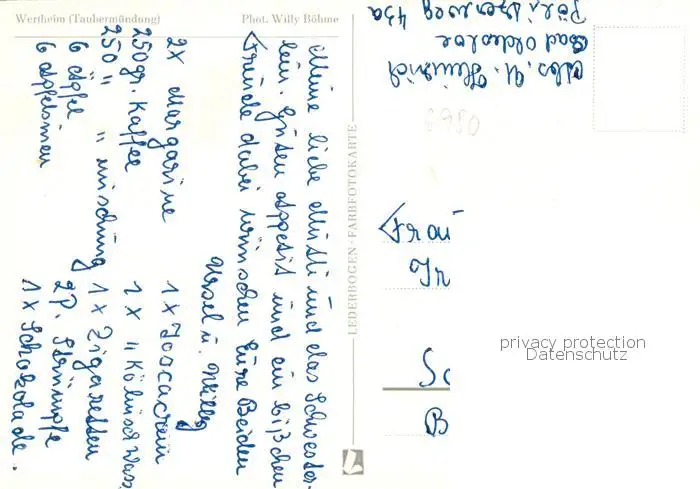 Wertheim (Taubermündung)
Phot. Willy Böhme
Meine liebe Mutti und das Schwester-
lein. Guten Appetit und ein bißchen
Freude dabei wünschen Eure Beiden
Ursel u. Willy
2 x Margarine
250 gr. Kaffee
250 " " mischung
6 Äpfel
6 Apfelsinen
1 x Toscacrem
1 x " Kölnisch Wass.
1 x Zigaretten
2 P. Strümpfe
1 x Schokolade.
LEDERBOGEN-FARBFOTOKARTE
Abs. U. Heinrich
Bad Oldesloe
43a
8980
Frau
Ir
So
B
privacy protection
Datenschutz